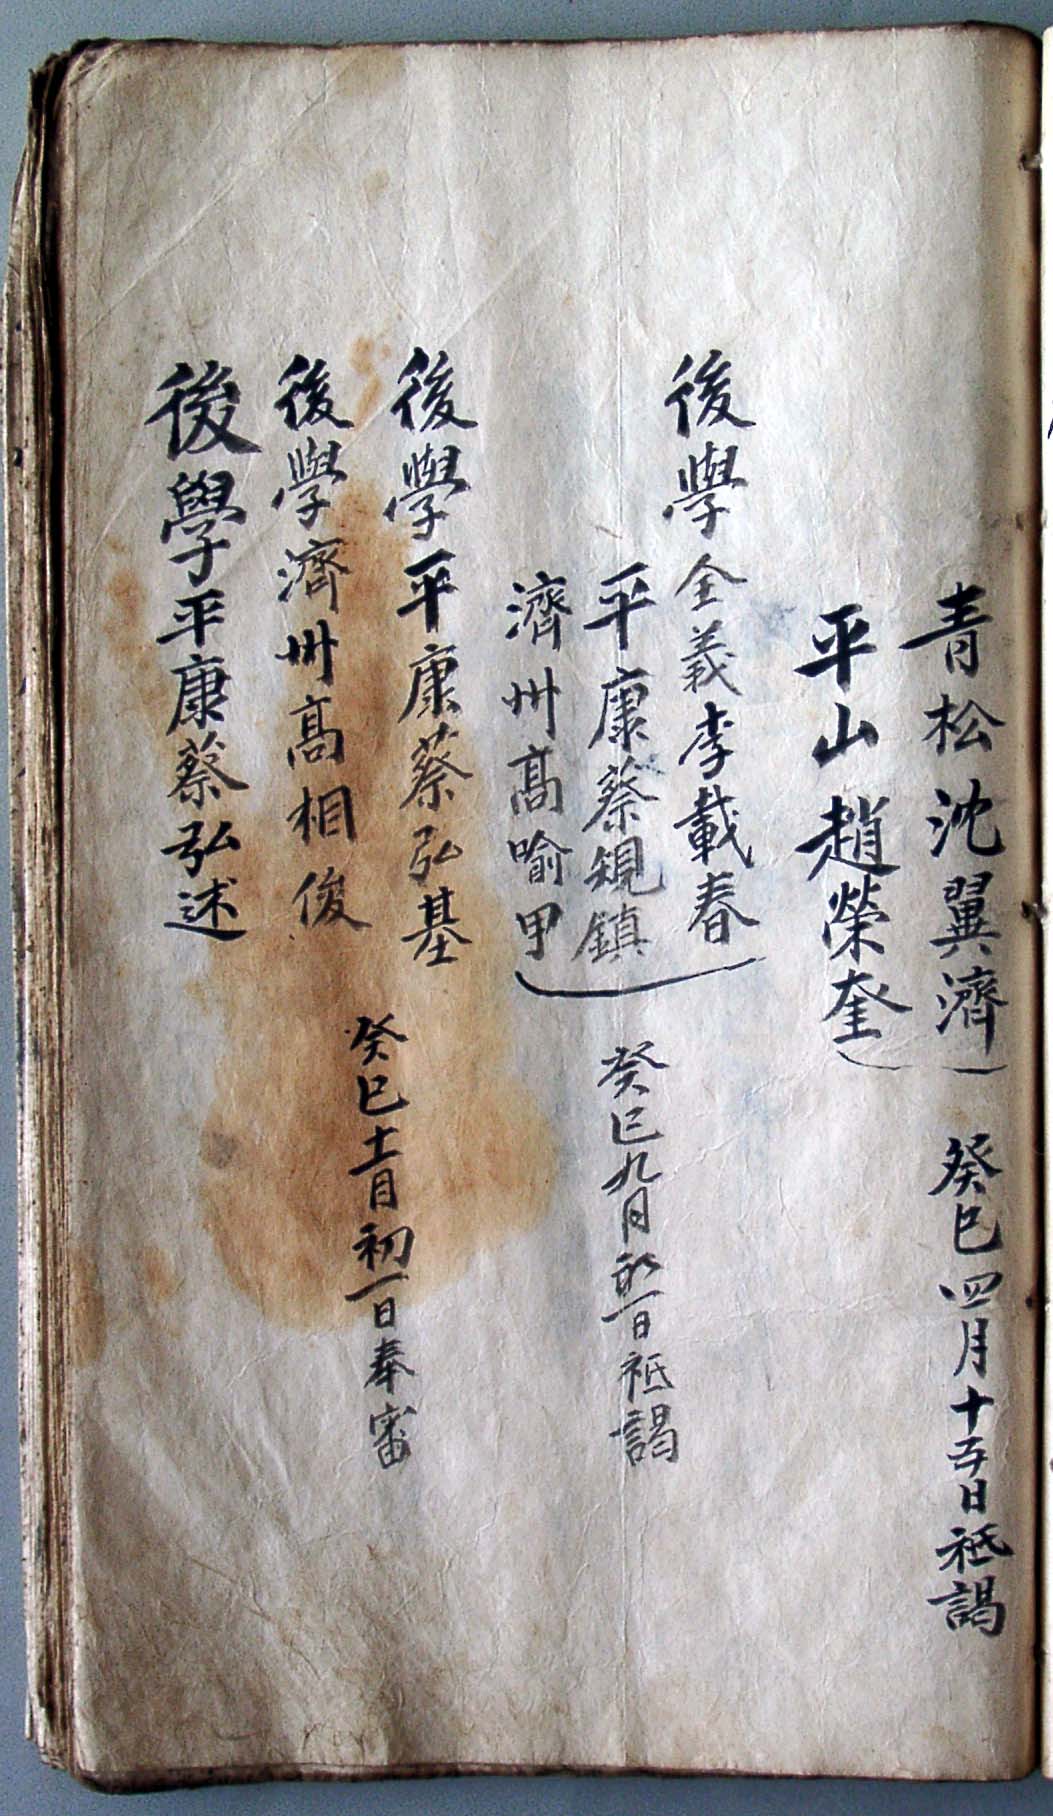 青松沈翼濟 癸巳四月十五日祗謁
平山趙榮奎
後學全義李載春
平康蔡規鎮 癸巳九月初一日祗謁
濟州高喻甲
後學平康蔡弘基
癸巳十一月初一日奉審
後學濟州高相俊
後學平康蔡弘述